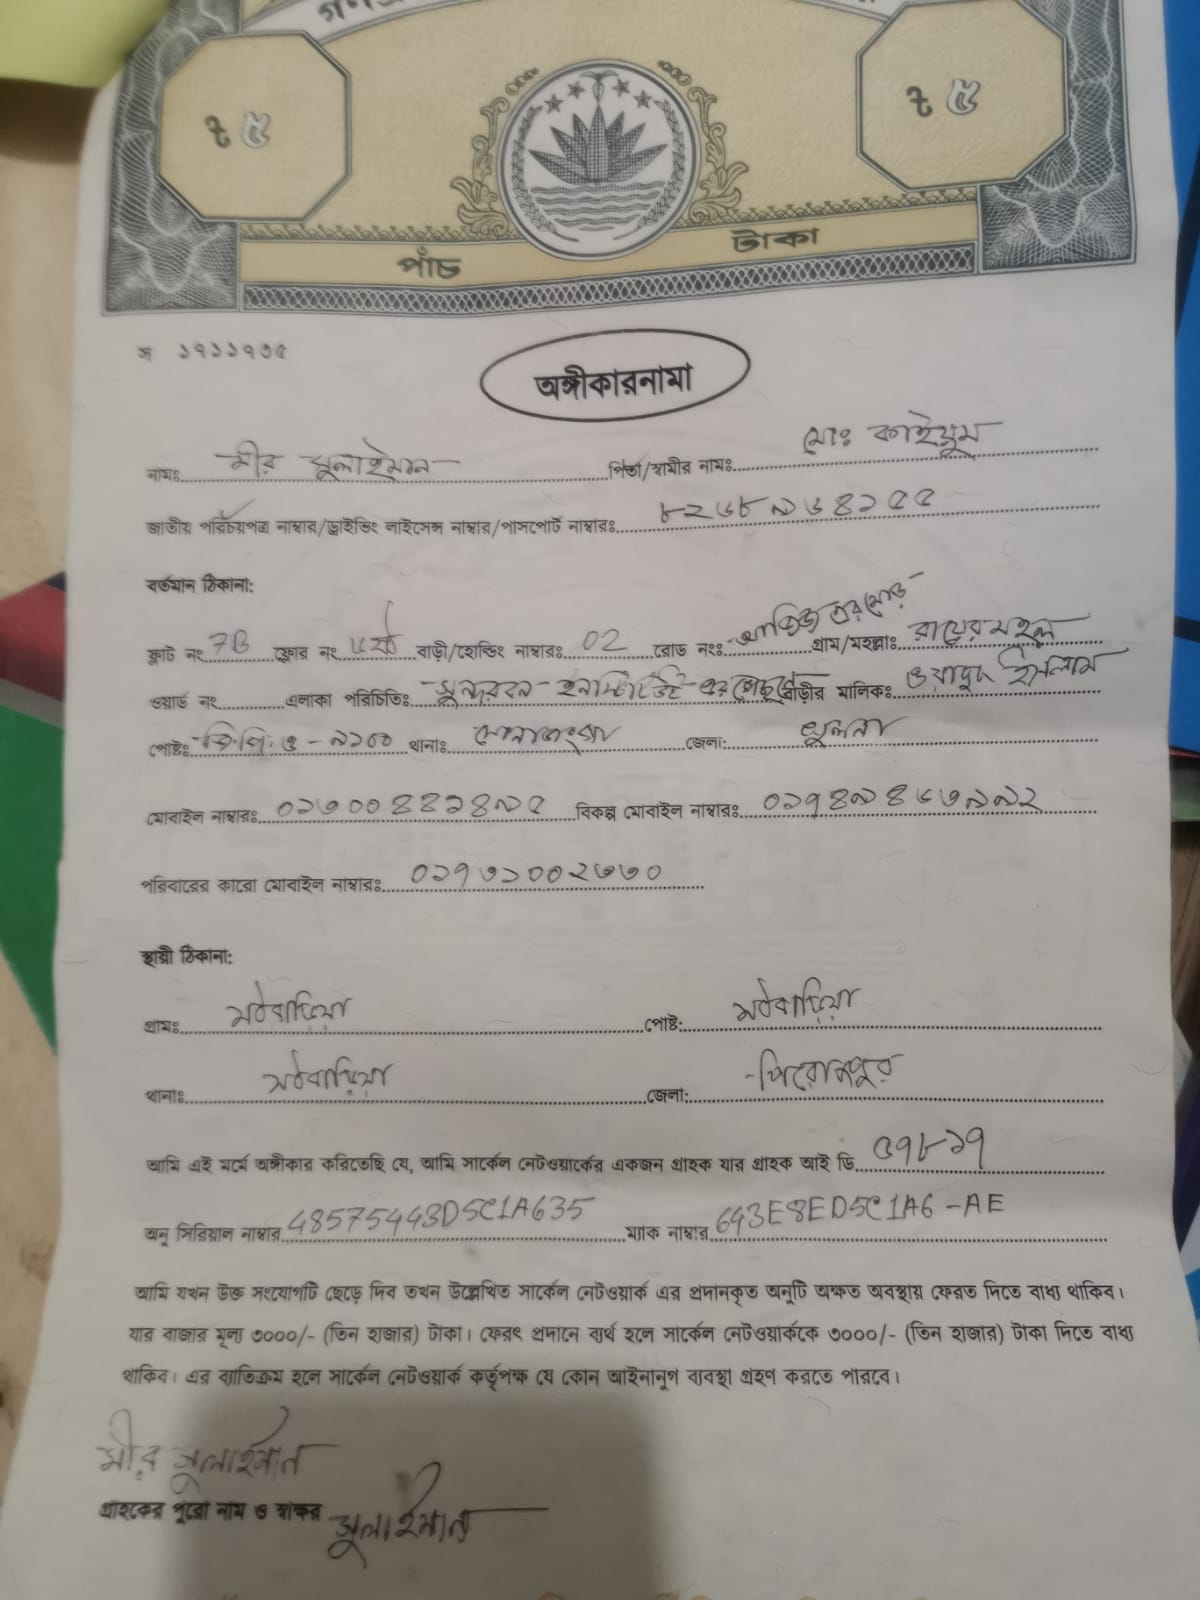 ৳ ৫
৳ ৫
পাঁচ টাকা
স ১৭১১৭৩৫
অঙ্গীকারনামা
নামঃ মীর সুলাইমান পিতা/স্বামীর নামঃ মোঃ কাইয়ুম
জাতীয় পরিচয়পত্র নাম্বার/ড্রাইভিং লাইসেন্স নাম্বার/পাসপোর্ট নাম্বারঃ ৮২৬৮৯৬৪১৫৫
বর্তমান ঠিকানা:
ফ্লাট নং 7B ফ্লোর নং ৬ষ্ঠ বাড়ী/হোল্ডিং নাম্বারঃ 02 রোড নংঃ মোড় গ্রাম/মহল্লাঃ রায়েরমহল
ওয়ার্ড নং এলাকা পরিচিতিঃ সুন্দরবন এর পেছনে বাড়ীর মালিকঃ ওয়াদুদ ইসলাম
পোষ্টঃ জি.পি.ও - ৯১০০ থানাঃ সোনাডাংগা জেলা: খুলনা
মোবাইল নাম্বারঃ ০১৩০০৪৪১৪৯৫ বিকল্প মোবাইল নাম্বারঃ ০১৭৪৯৪৬৩৯৯২
পরিবারের কারো মোবাইল নাম্বারঃ ০১৭৩১০০২৩৩০
স্থায়ী ঠিকানা:
গ্রামঃ মঠবাড়িয়া পোষ্ট: মঠবাড়িয়া
থানাঃ মঠবাড়িয়া জেলা: পিরোজপুর
আমি এই মর্মে অঙ্গীকার করিতেছি যে, আমি সার্কেল নেটওয়ার্কের একজন গ্রাহক যার গ্রাহক আই ডি ৩৭৮১৭
অনু সিরিয়াল নাম্বার 48575443D5C1A635 ম্যাক নাম্বার 643E8ED5C1A6-AE
আমি যখন উক্ত সংযোগটি ছেড়ে দিব তখন উল্লেখিত সার্কেল নেটওয়ার্ক এর প্রদানকৃত অনুটি অক্ষত অবস্থায় ফেরত দিতে বাধ্য থাকিব।
যার বাজার মূল্য ৩০০০/- (তিন হাজার) টাকা। ফেরৎ প্রদানে ব্যর্থ হলে সার্কেল নেটওয়ার্ককে ৩০০০/- (তিন হাজার) টাকা দিতে বাধ্য
থাকিব। এর ব্যতিক্রম হলে সার্কেল নেটওয়ার্ক কর্তৃপক্ষ যে কোন আইনানুগ ব্যবস্থা গ্রহণ করতে পারবে।
মীর সুলাইমান
গ্রাহকের পুরো নাম ও স্বাক্ষর সুলাইমান